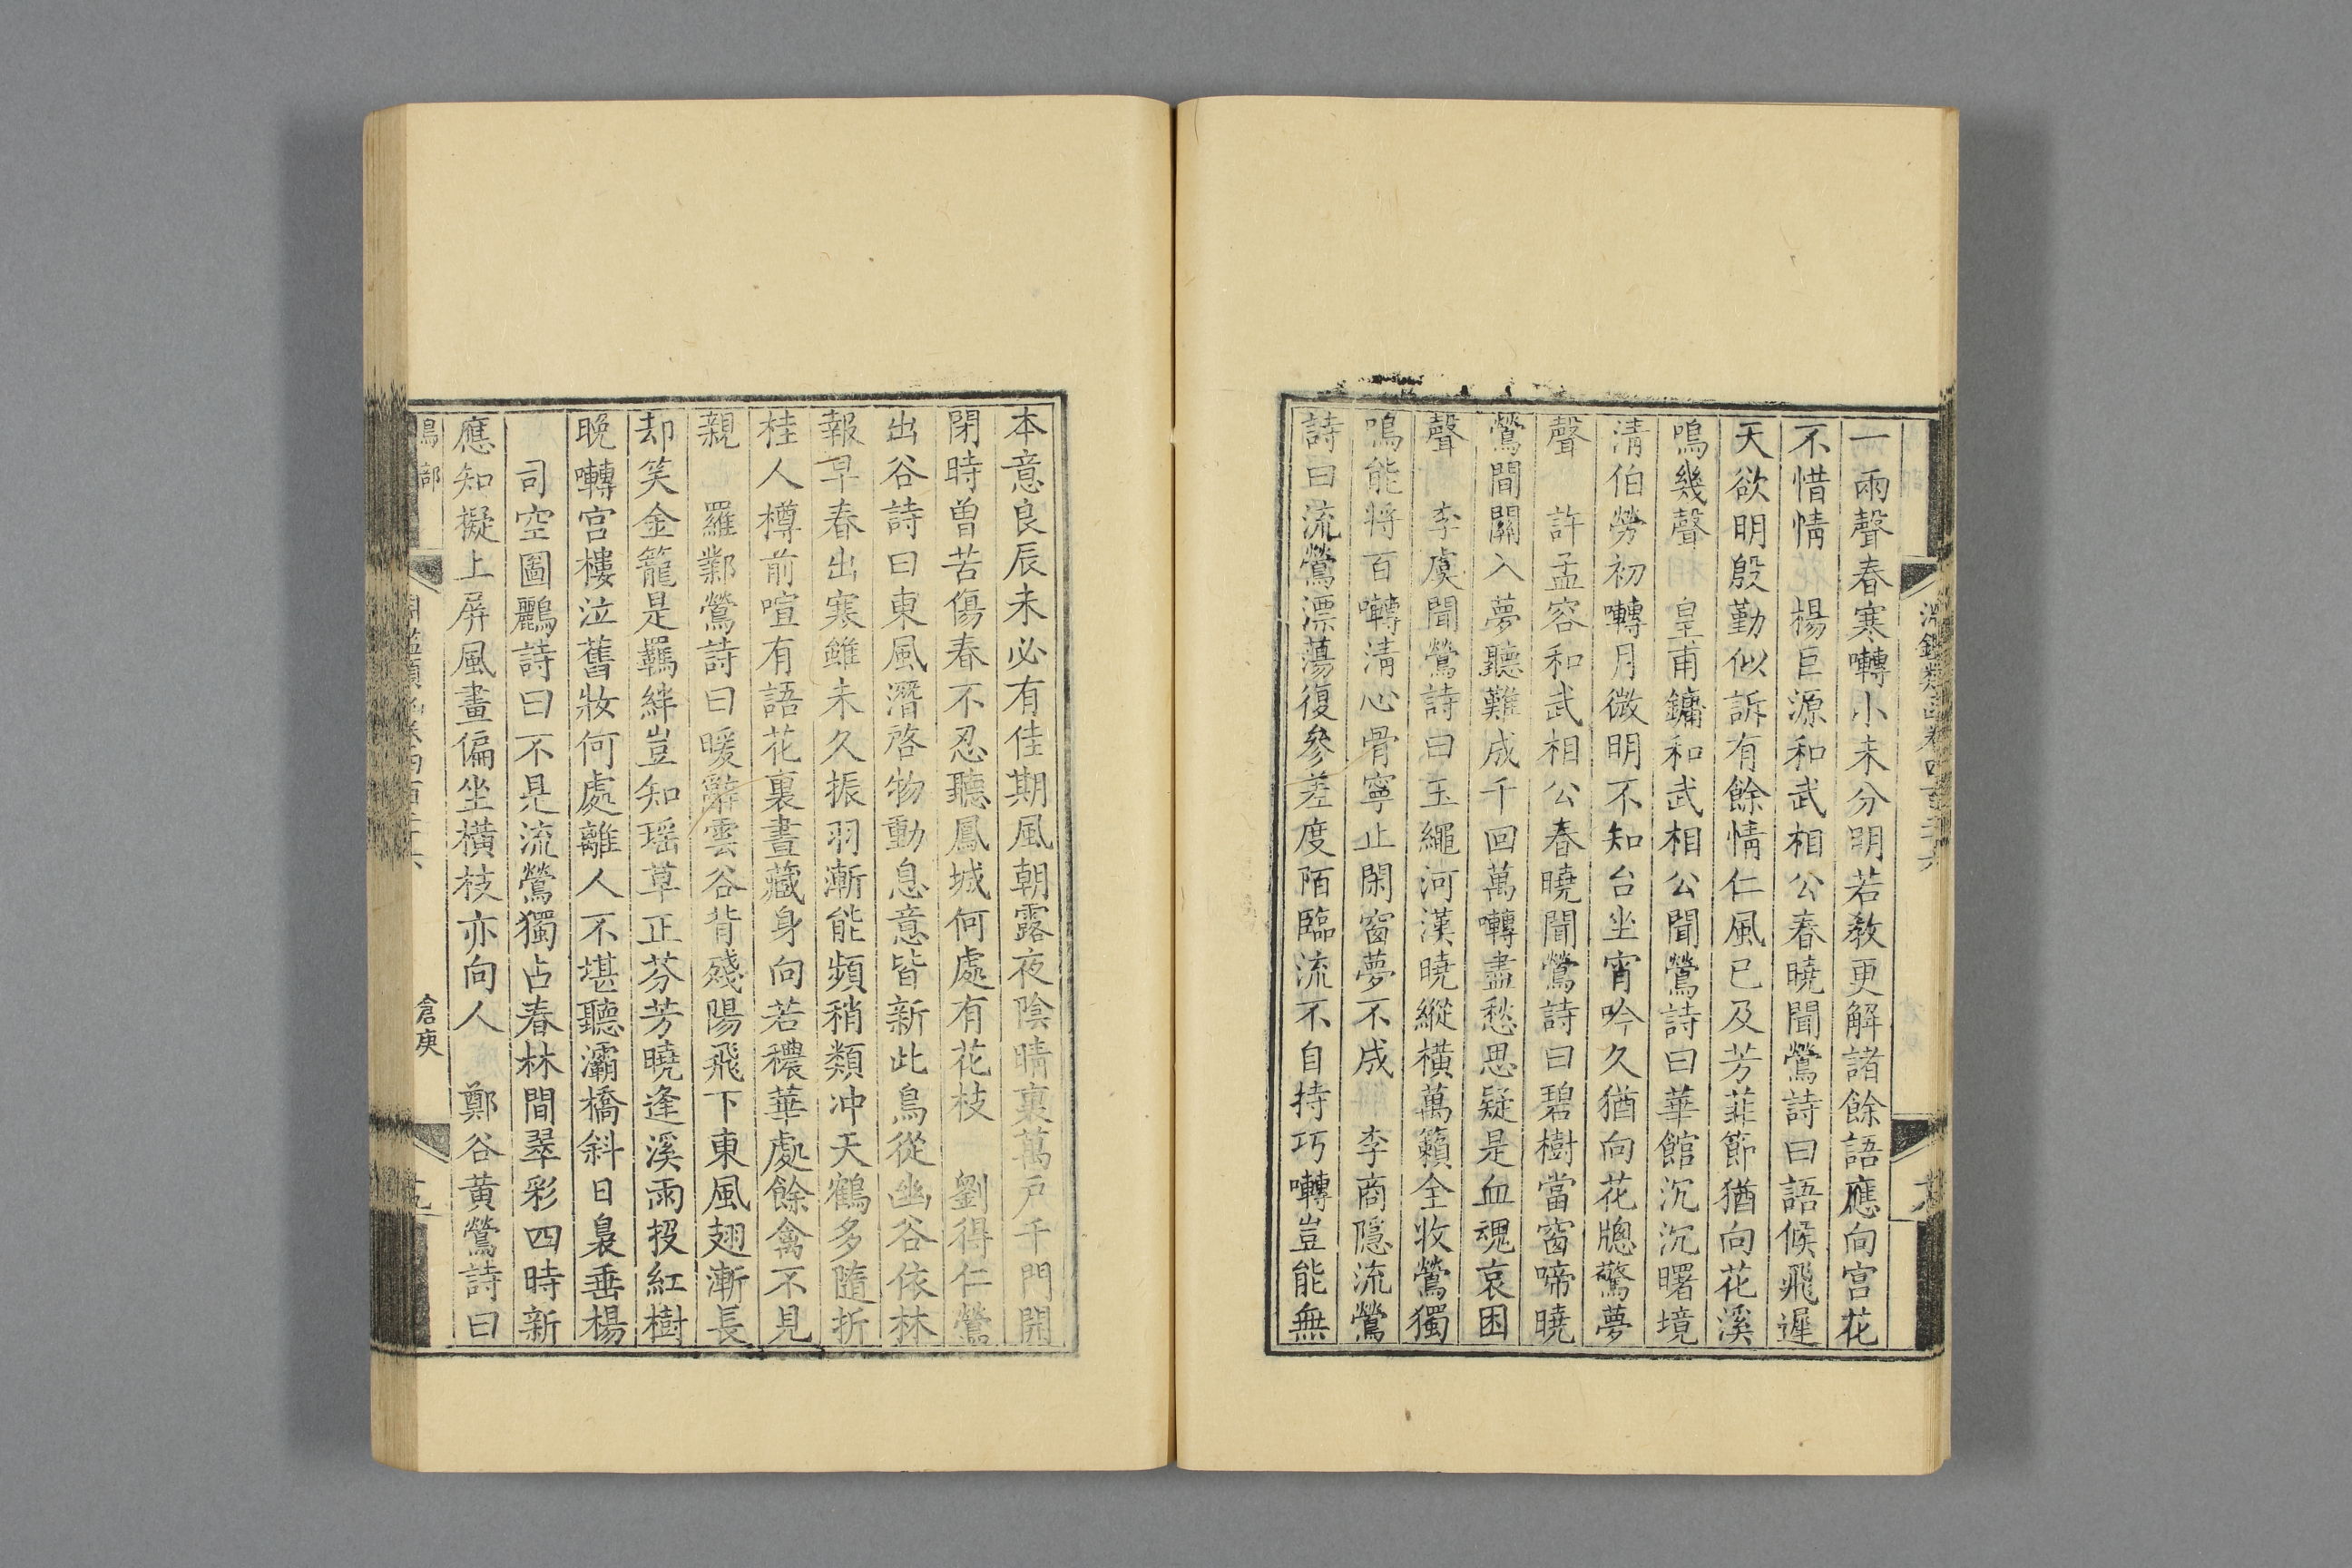 淵鑑類函卷四百二十六
一兩聲春寒囀小未分明若敎更解諸餘語應向宫花
不惜情　楊巨源和武相公春曉聞鶯詩曰語候飛遲
天欲明殷勤似訴有餘情仁風已及芳菲節猶向花溪
鳴幾聲　皇甫鏞和武相公聞鶯詩曰華館沉沉曙境
淸伯勞初囀月微明不知台坐宵吟久猶向花牕驚夢
聲　許孟容和武相公春曉聞鶯詩曰碧樹當窗啼曉
鶯間關入夢聽難成千回萬囀盡愁思疑是血魂哀困
聲　李虞聞鶯詩曰玉繩河漢曉縱橫萬籟全收鶯獨
鳴能將百囀淸心骨寧止閑窗夢不成　李商隱流鶯
詩曰流鶯漂蕩復參差度陌臨流不自持巧囀豈能無
本意良辰未必有佳期風朝露夜陰晴裏萬戶千門開
閉時曾苦傷春不忍聽鳳城何處有花枝　劉得仁鶯
出谷詩曰東風潛啓物動息意皆新此鳥從幽谷依林
報早春出寒雖未久振羽漸能頻稍類冲天鶴多隨折
桂人樽前喧有語花裏晝藏身向若穠華處餘禽不見
親　羅鄴鶯詩曰暖辭雲谷背殘陽飛下東風翅漸長
却笑金籠是羈絆豈知瑶草正芬芳曉逢溪雨投紅樹
晚囀宫樓泣舊妝何處離人不堪聽灞橋斜日裊垂楊
司空圖鸝詩曰不是流鶯獨占春林間翠彩四時新
應知擬上屏風畫偏坐橫枝亦向人　鄭谷黄鶯詩曰
鳥部
倉庚